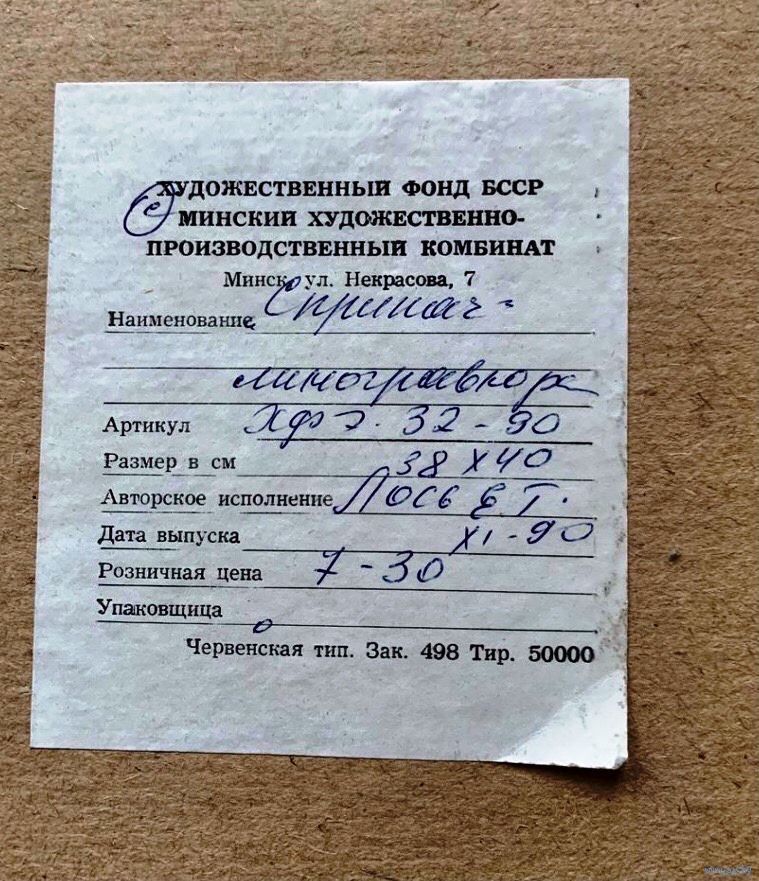 ХУДОЖЕСТВЕННЫЙ ФОНД БССР
(с) МИНСКИЙ ХУДОЖЕСТВЕННО-
ПРОИЗВОДСТВЕННЫЙ КОМБИНАТ
Минск, ул. Некрасова, 7
Наименование
линогравюра
Артикул ХФЭ. 32-90
Размер в см 38 х 40
Авторское исполнение Лось Е. Г.
Дата выпуска XI-90
Розничная цена 7-30
Упаковщица
Червенская тип. Зак. 498 Тир. 50000